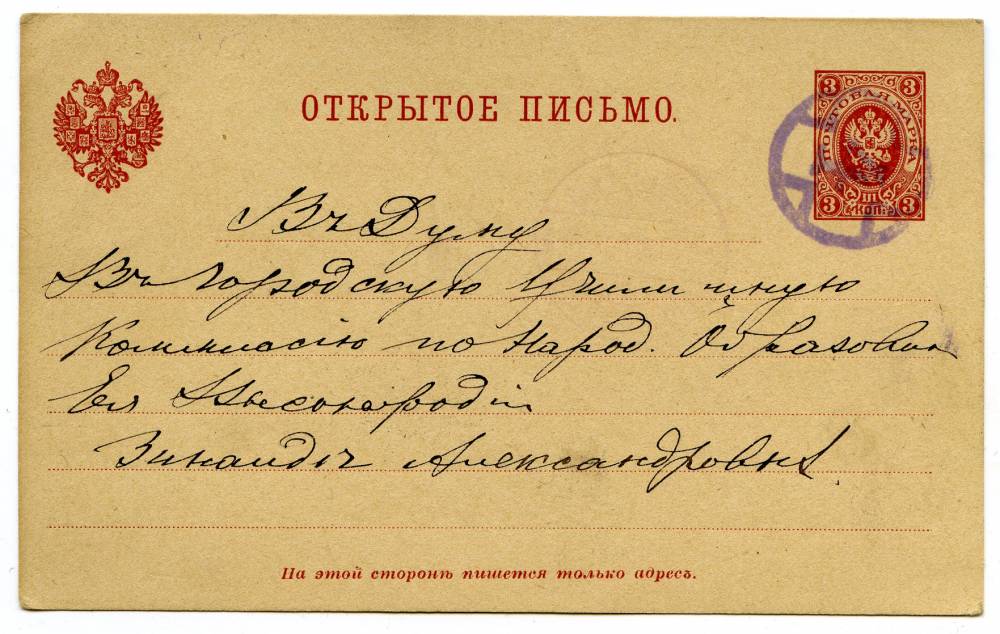 ОТКРЫТОЕ ПИСЬМО.
3 3
ПОЧТОВАЯ МАРКА
III
3 КОП. 3
Въ Думу
Въ городскую Училищную
Коммиссію по Народ. Образован
Ея Высокородію
Зинаидѣ Александровнѣ
На этой сторонѣ пишется только адресъ.